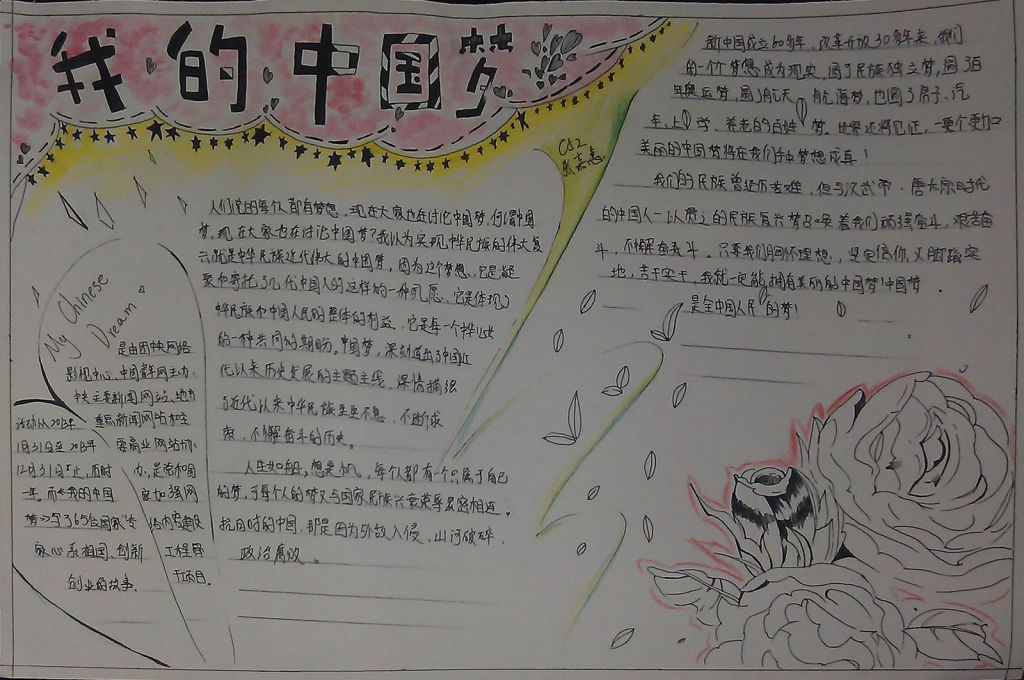 我的中国梦
新中国成立60多年,改革开放30多年来,我们
的一个个梦想成为现实,圆了民族独立梦,圆了百
年奥运梦,圆了航天、航海梦,也圆了房子、汽
车、上学、养老的百姓梦。世界还将见证,一个更加
美丽的中国梦将在我们手中梦想成真!
我们的民族曾经历苦难,但与汉武帝、唐太宗时代
的中国人一以贯之的民族复兴梦召唤着我们顽强奋斗,艰苦奋
斗,不懈奋斗。只要我们胸怀理想,坚定信仰,又脚踏实
地,苦干实干,我就一定能拥有美丽的中国梦!中国梦,
是全中国人民的梦!
C82
人们说的每个人都有梦想,现在大家也在讨论中国梦,何谓中国
梦,现在大家也在讨论中国梦?我以为实现中华民族的伟大复
兴就是中华民族近代伟大的中国梦,因为这个梦想,它是凝
聚和寄托了几代中国人的这样的一种夙愿,它是体现了
中华民族和中国人民的整体的利益,它是每一个中华儿女
的一种共同的期盼。中国梦,深刻道出了中国近
代以来历史发展的主题主线,深情描绘
了近代以来中华民族生生不息、不断求
索、不懈奋斗的历史。
人生如船,梦想是帆,每个人都有一个只属于自己
的梦,而每个人的梦又与国家民族兴衰荣辱紧密相连。
抗日时的中国,那是因为外敌入侵,山河破碎,
政治腐败。
My Chinese
Dream
是由团中央网络
影视中心、中国青年网主办,
中央主要新闻网站、地方
重点新闻网站和主
要商业网站协
办,是党和国
家加强网
络内容建设
工程骨
干项目。
活动从2013年
1月31日至2013年
12月31日止,历时
一年。而《我的中国
梦》写了365位国家专
家心系祖国、创新
创业的故事。